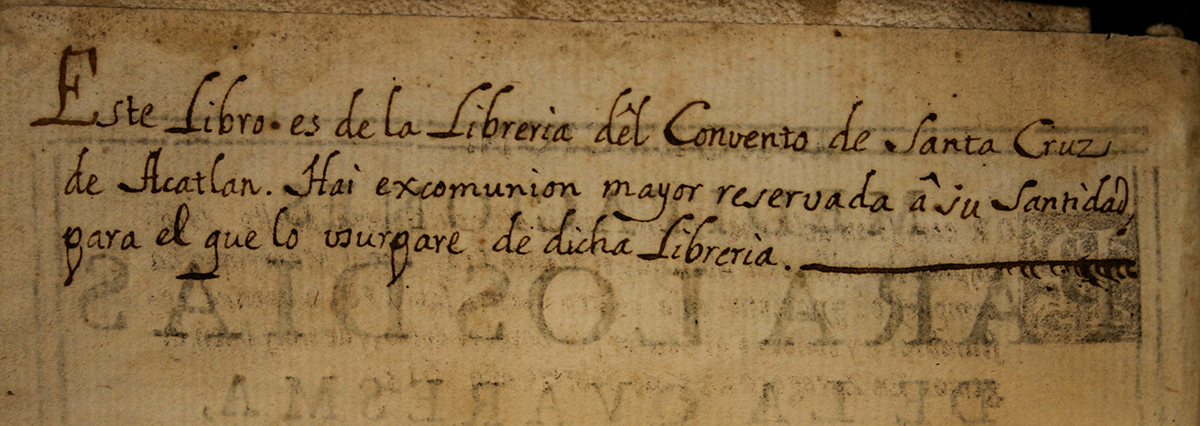 Este Libro es de la Libreria dêl Convento de Santa Cruz
de Acatlan. Hai excomunion mayor reservada â su Santidad,
para el que lo usurpare de dicha Libreria.
PARA LOS DIAS
DE LA QVARESMA,